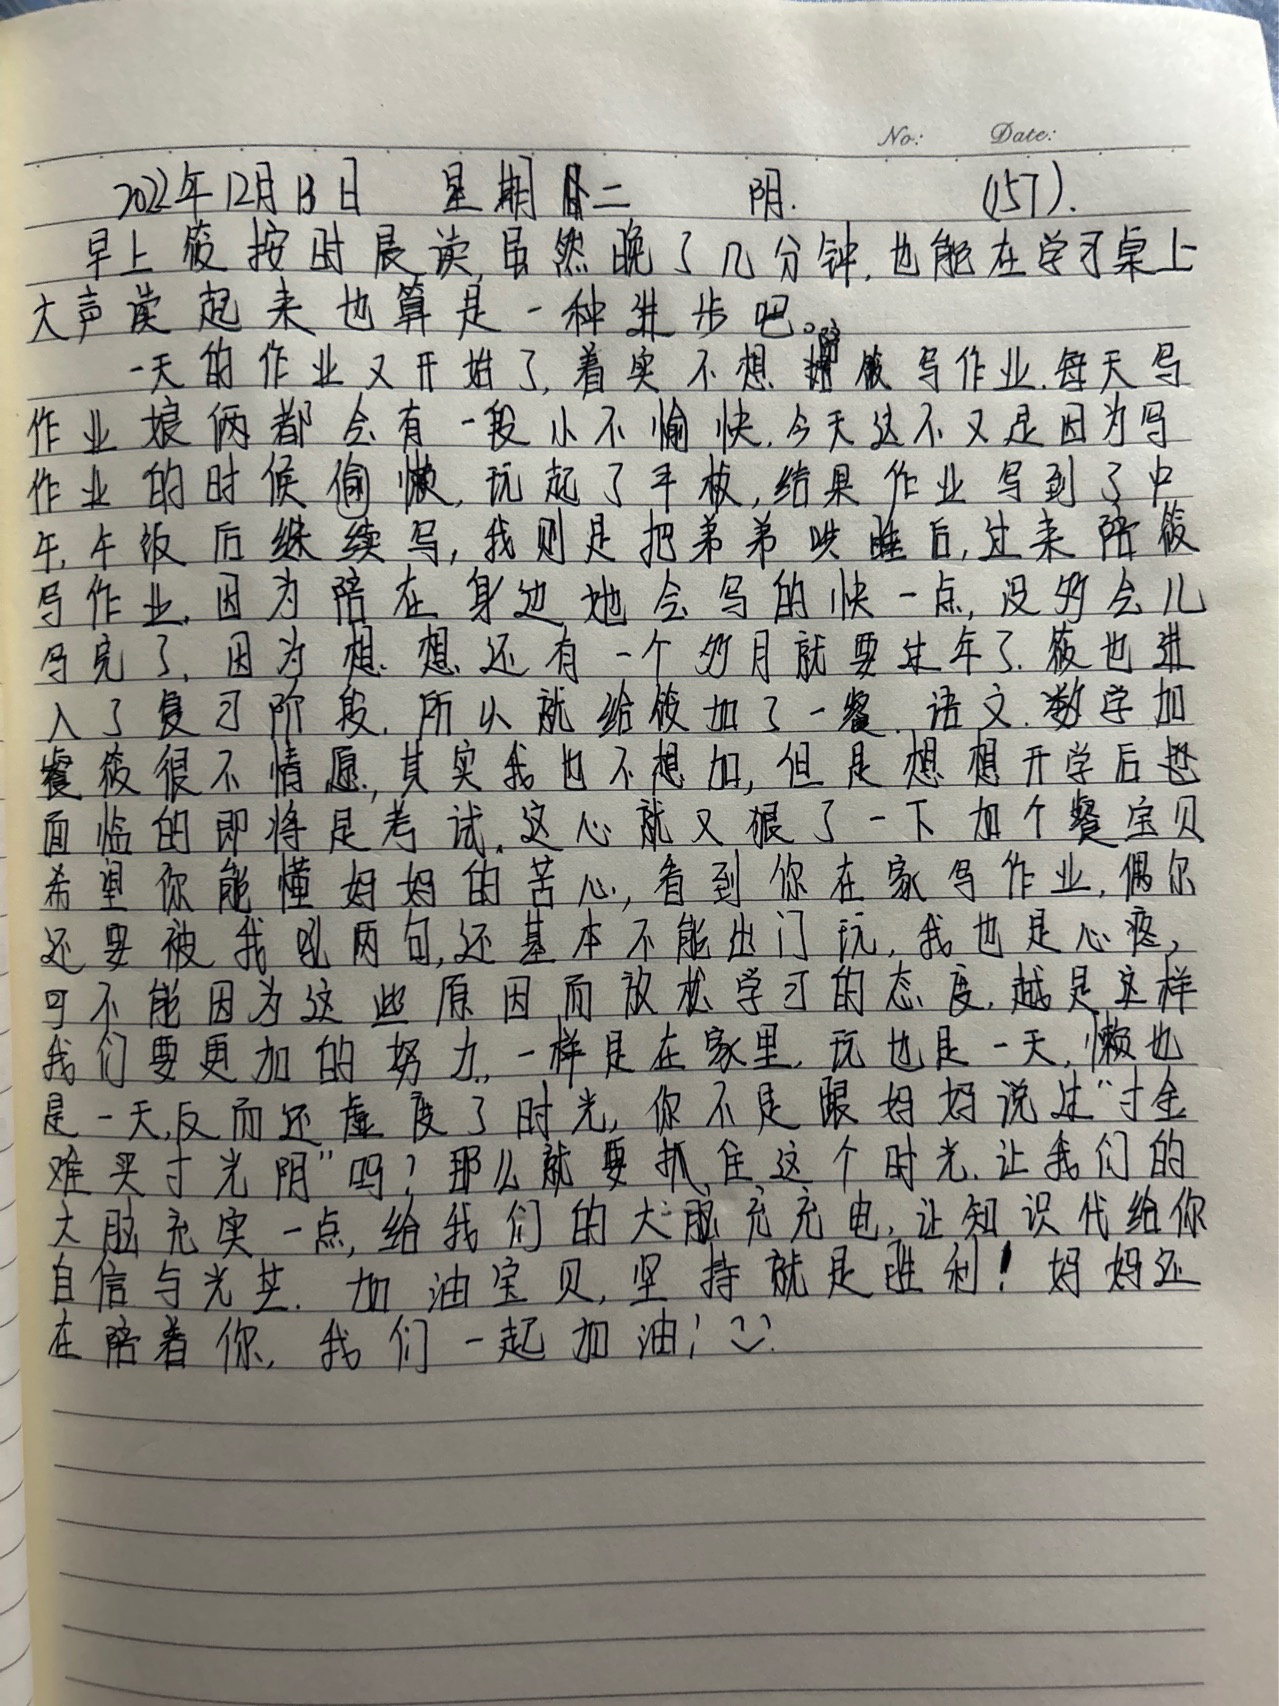 No: Date:
2022年12月13日 星期二 阴. (157).
早上筱按时晨读,虽然晚了几分钟,也能在学习桌上
大声读起来也算是一种进步吧。
一天的作业又开始了,着实不想陪筱写作业.每天写
作业娘俩都会有一段小不愉快,今天这不又是因为写
作业的时候偷懒,玩起了平板,结果作业写到了中
午,午饭后继续写,我则是把弟弟哄睡后,过来陪筱
写作业,因为陪在身边她会写的快一点,没多会儿
写完了,因为想想还有一个多月就要过年了.筱也进
入了复习阶段,所以就给筱加了一餐.语文.数学加
餐筱很不情愿,其实我也不想加,但是想想开学后
面临的即将是考试,这心就又狠了一下加个餐宝贝
希望你能懂妈妈的苦心,看到你在家写作业,偶尔
还要被我吼两句,还基本不能出门玩,我也是心疼,
可不能因为这些原因而放松学习的态度,越是这样
我们要更加的努力,一样是在家里,玩也是一天,懒也
是一天,反而还虚度了时光,你不是跟妈妈说过"寸金
难买寸光阴"吗?那么就要抓住这个时光,让我们的
大脑充实一点,给我们的大脑充充电,让知识代给你
自信与光芒.加油宝贝,坚持就是胜利!妈妈还
在陪着你,我们一起加油!